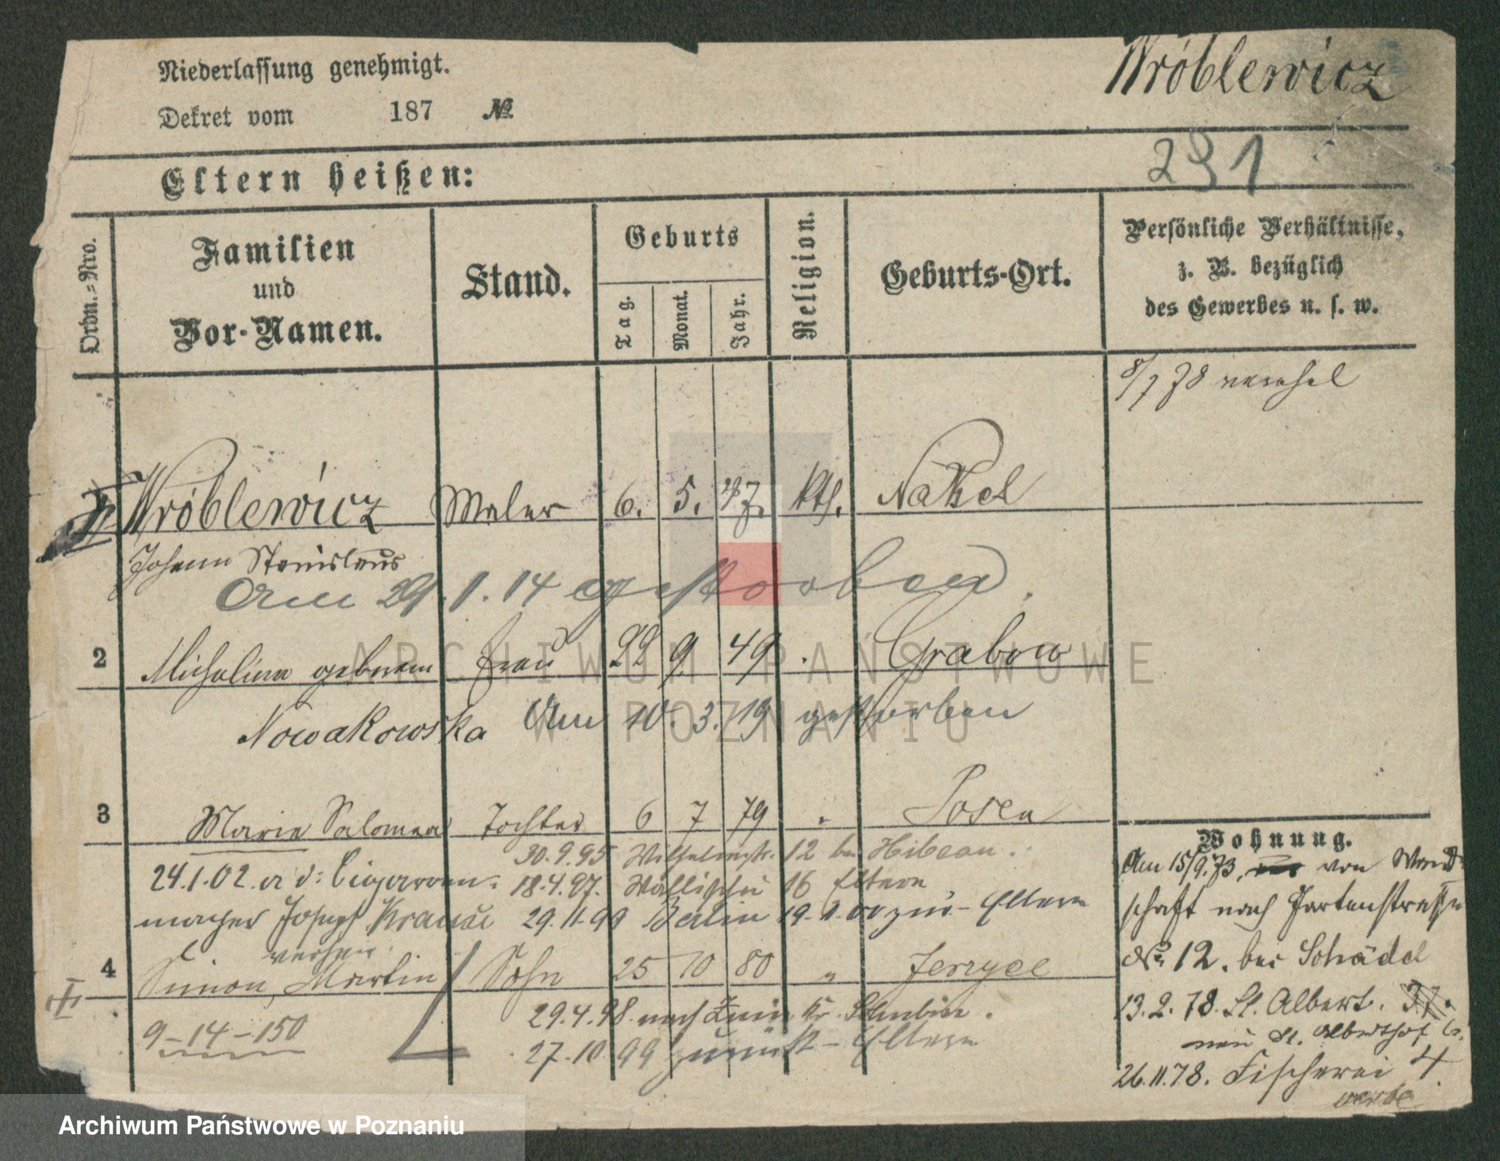 Niederlassung genehmigt.
Wróblewicz
Dekret vom 187 №
291
Eltern heißen:
Ordn.=Nro.
Familien
und
Vor-Namen.
Stand.
Geburts
Tag.
Monat.
Jahr.
Religion.
Geburts-Ort.
Persönliche Verhältnisse,
z. B. bezüglich
des Gewerbes u. s. w.
8/7 78
Wróblewicz Maler 6. 5. 47. kth. Nakel
Johann Stanislaus
Am 29.1.14 gestorben.
2 Michalina geborene Frau 22 9. 49 Grabow
Nowakowska Am 10.3.19 gestorben
3 Marie Salomea Tochter 6 7 79 " Posen
30.9.95 Wilhelmstr. 12 bei
24.1.02 a d: Cigarren=
18.4.97. Wallischei 16 Eltern
macher Joseph Krause
29.11.99 Berlin 19.1.00 zur. Eltern
verheir.
4 Simon, Martin Sohn 25 10 80 " Jerzyce
29.4.98 nach Znin Kr. Schubin.
9-14-150
27.10 99 zurück - Eltern
Wohnung.
Am 15/9.73, von Wand=
schaft nach Gartenstrasse
№ 12. bei Schädel
13.2.78. St. Albert. 37.
neu St. Alberthof
26.11.78. Fischerei 4.
ARCHIWUM PAŃSTWOWE
W POZNANIU
Archiwum Państwowe w Poznaniu